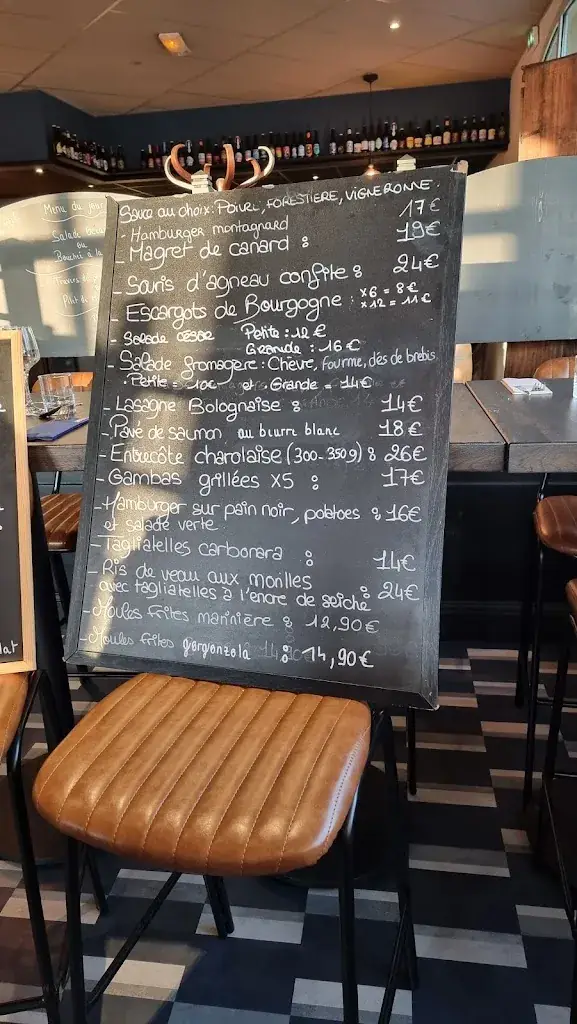 Menu du jour
Salade
ou
Sauce au choix: POIVRE, FORESTIERE, VIGNERONNE.
- Hamburger montagnard 17€
- Magret de canard : 19€
- Souris d'agneau confite : 24€
- Escargots de Bourgogne : x6 = 8€
x12 = 11€
- Salade césar Petite : 12€
Grande : 16€
- Salade fromagère : Chèvre, fourme, dés de brebis.
Petite = 10€ et Grande = 14€
- Lasagne Bolognaise : 14€
- Pavé de saumon au beurre blanc 18€
- Entrecôte charolaise (300-350g) : 26€
- Gambas grillées x5 : 17€
- Hamburger sur pain noir, potatoes : 16€
et salade verte.
- Tagliatelles carbonara : 14€
- Ris de veau aux morilles
avec tagliatelles à l'encre de seiche : 24€
- Moules frites marinière : 12,90€
- Moules frites gorgonzola : 14,90€